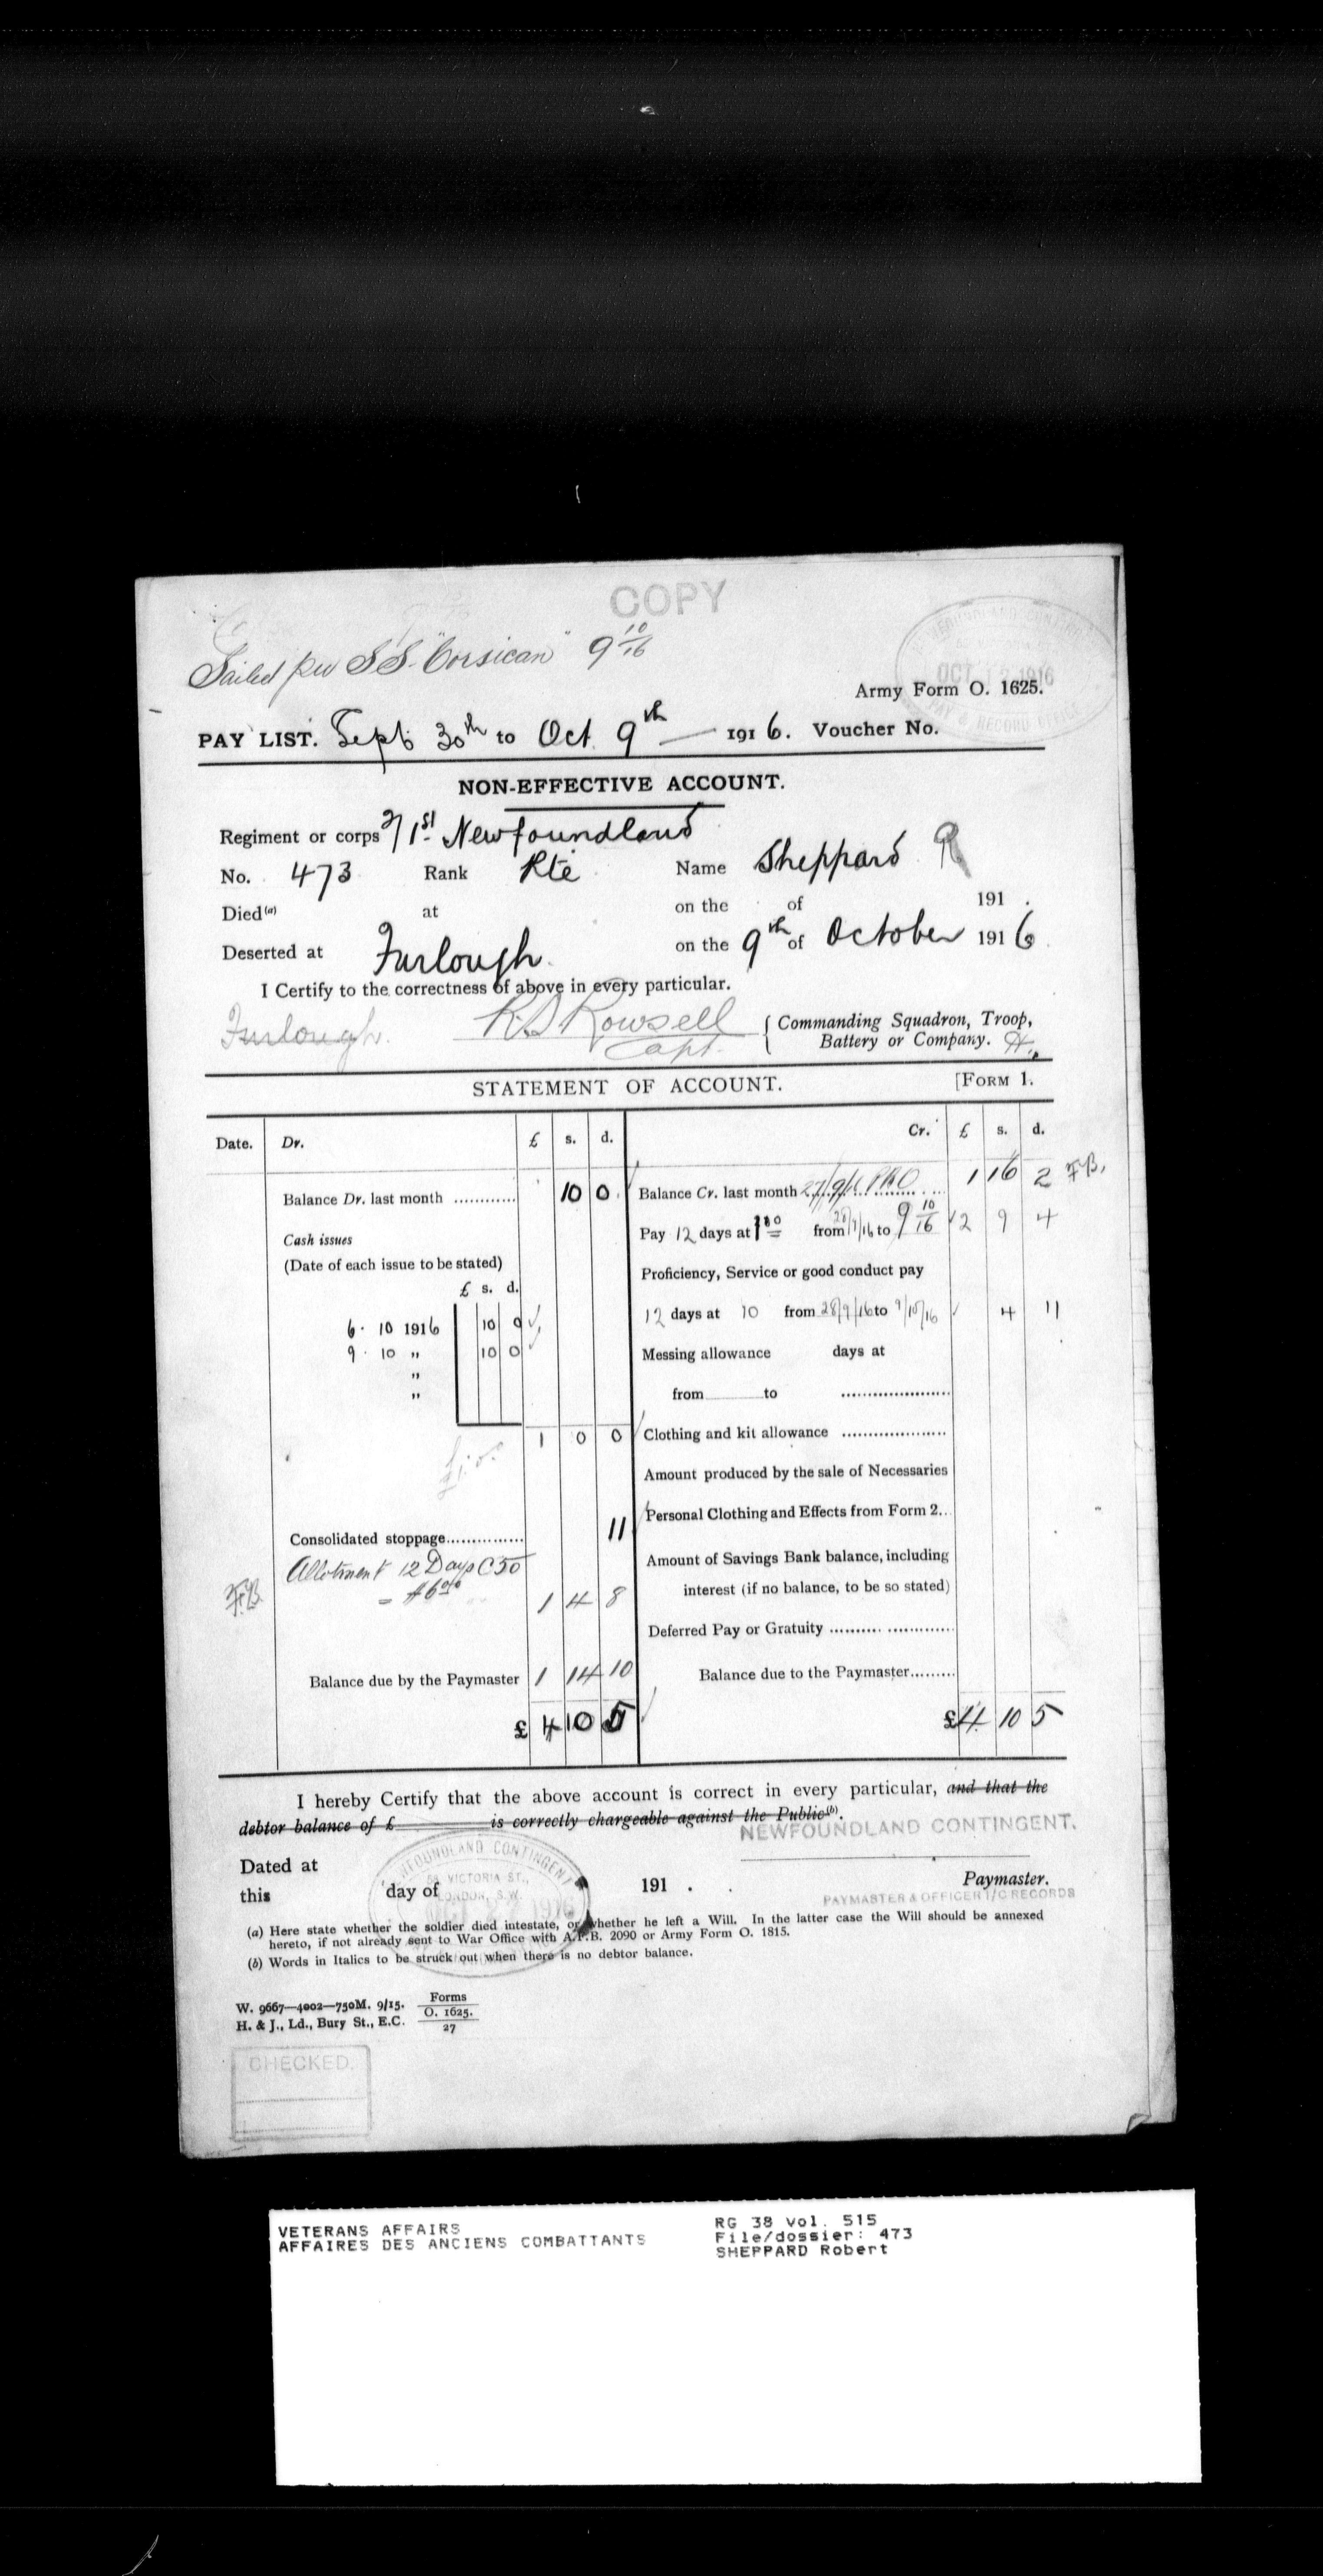 COPY
Sailed per S.S. "Corsican" 9 10/16
OCT 1916
PAY & RECORD OFFICE
Army Form O. 1625.
PAY LIST. Sept 30th to Oct. 9th — 1916. Voucher No.
NON-EFFECTIVE ACCOUNT.
Regiment or corps 2/1st Newfoundland
No. 473 Rank Pte Name Sheppard R
Died (a) at on the of 191 .
Deserted at Furlough. on the 9th of October 1916
I Certify to the correctness of above in every particular.
Furlough. R.S Rowsell Capt. { Commanding Squadron, Troop,
Battery or Company. H.
STATEMENT OF ACCOUNT. [FORM 1.
Date. Dr. £ s. d. Cr. £ s. d.
Balance Dr. last month ............ 10 0 Balance Cr. last month 27/9/16 PRO 1 16 2 F.B.
Cash issues Pay 12 days at 1 00 from 28/9/16 to 9 10/16 2 9 4
(Date of each issue to be stated) Proficiency, Service or good conduct pay
£ s. d.
6. 10 1916 10 0 12 days at 10 from 28/9/16 to 9/10/16 4 11
9. 10 " 10 0 Messing allowance days at
"
" from to
1 0 0 Clothing and kit allowance
Amount produced by the sale of Necessaries
Consolidated stoppage 11 Personal Clothing and Effects from Form 2..
Allotment 12 Days C50 Amount of Savings Bank balance, including
F.B. = $6 00 1 4 8 interest (if no balance, to be so stated)
Deferred Pay or Gratuity
Balance due by the Paymaster 1 14 10 Balance due to the Paymaster
£ 4 10 5 £ 4 10 5
I hereby Certify that the above account is correct in every particular, and that the
debtor balance of £ is correctly chargeable against the Public (b).
NEWFOUNDLAND CONTINGENT.
Dated at
this day of 191 . Paymaster.
PAYMASTER & OFFICER I/C RECORDS
NEWFOUNDLAND CONTINGENT
VICTORIA ST.,
LONDON, S.W.
OCT 27 1916
(a) Here state whether the soldier died intestate, or whether he left a Will. In the latter case the Will should be annexed
hereto, if not already sent to War Office with A.F.B. 2090 or Army Form O. 1815.
(b) Words in Italics to be struck out when there is no debtor balance.
W. 9667—4002—750M. 9/15. Forms
H. & J., Ld., Bury St., E.C. O. 1625.
27
CHECKED.
VETERANS AFFAIRS RG 38 Vol. 515
AFFAIRES DES ANCIENS COMBATTANTS File/dossier: 473
SHEPPARD Robert